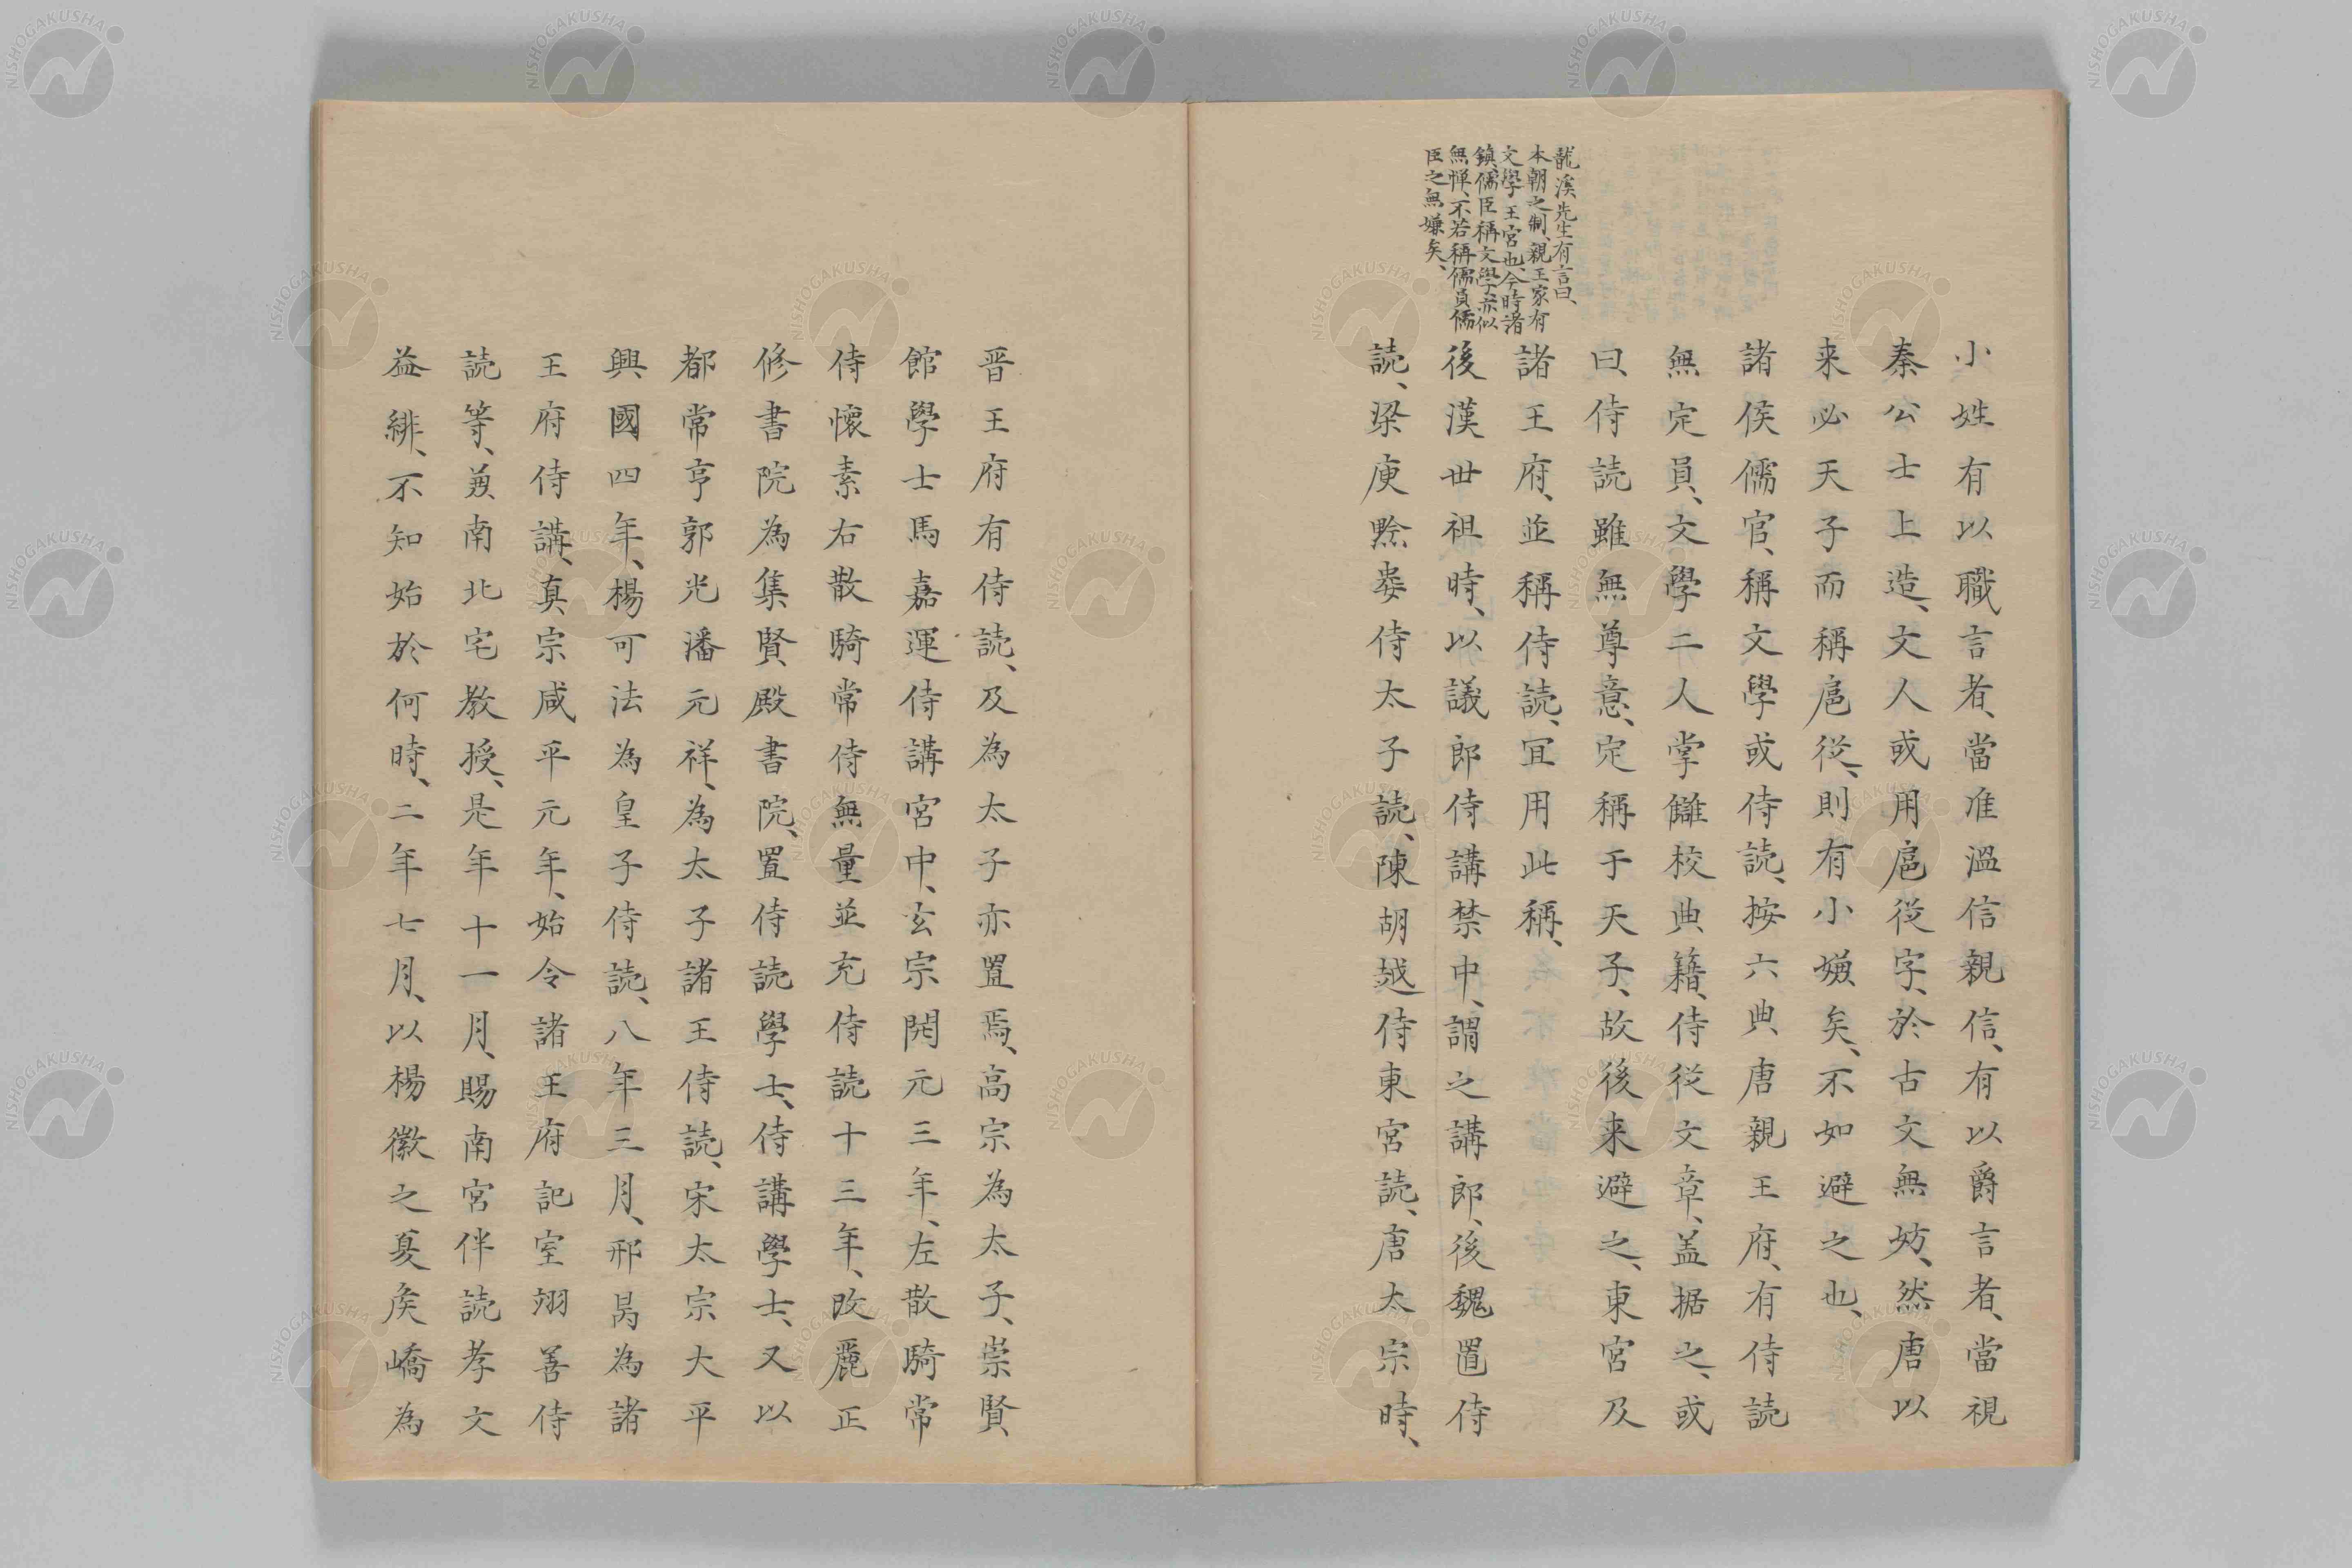 龍溪先生有言曰、
本朝之制、親王家有
文學王宮也、今時諸
鎮、儒臣稱文學亦似
無憚、不若稱儒員儒
臣之無嫌矣、
小姓有以職言者、當准溫信親信、有以爵言者、當視
秦公士上造、文人或用扈從字、於古文無妨、然唐以
来必天子而稱扈從、則有小嫌矣、不如避之也、
諸侯儒官、稱文學或侍読、按六典唐親王府、有侍読
無定員、文學二人掌雠校典籍、侍從文章、盖据之、或
曰、侍読雖無尊意、定稱于天子、故後来避之、東宮及
諸王府、並稱侍読、宜用此稱、
後漢世祖時、以議郎侍講禁中、謂之講郎、後魏置侍
読、梁庾黔婁侍太子読、陳胡越侍東宮読、唐太宗時、
晋王府有侍読、及為太子亦置焉、高宗為太子、崇賢
館學士馬嘉運侍講宮中、玄宗開元三年、左散騎常
侍懷素右散騎常侍無量並充侍読十三年、改麗正
修書院為集賢殿書院、置侍読學士、侍講學士、又以
都常亨郭光潘元祥、為太子諸王侍読、宋太宗大平
興國四年、楊可法為皇子侍読、八年三月、邢昺為諸
王府侍講、真宗咸平元年、始令諸王府記室翊善侍
読等、兼南北宅教授、是年十一月、賜南宮伴読孝文
益緋、不知始於何時、二年七月、以楊徽之夏矦嶠為